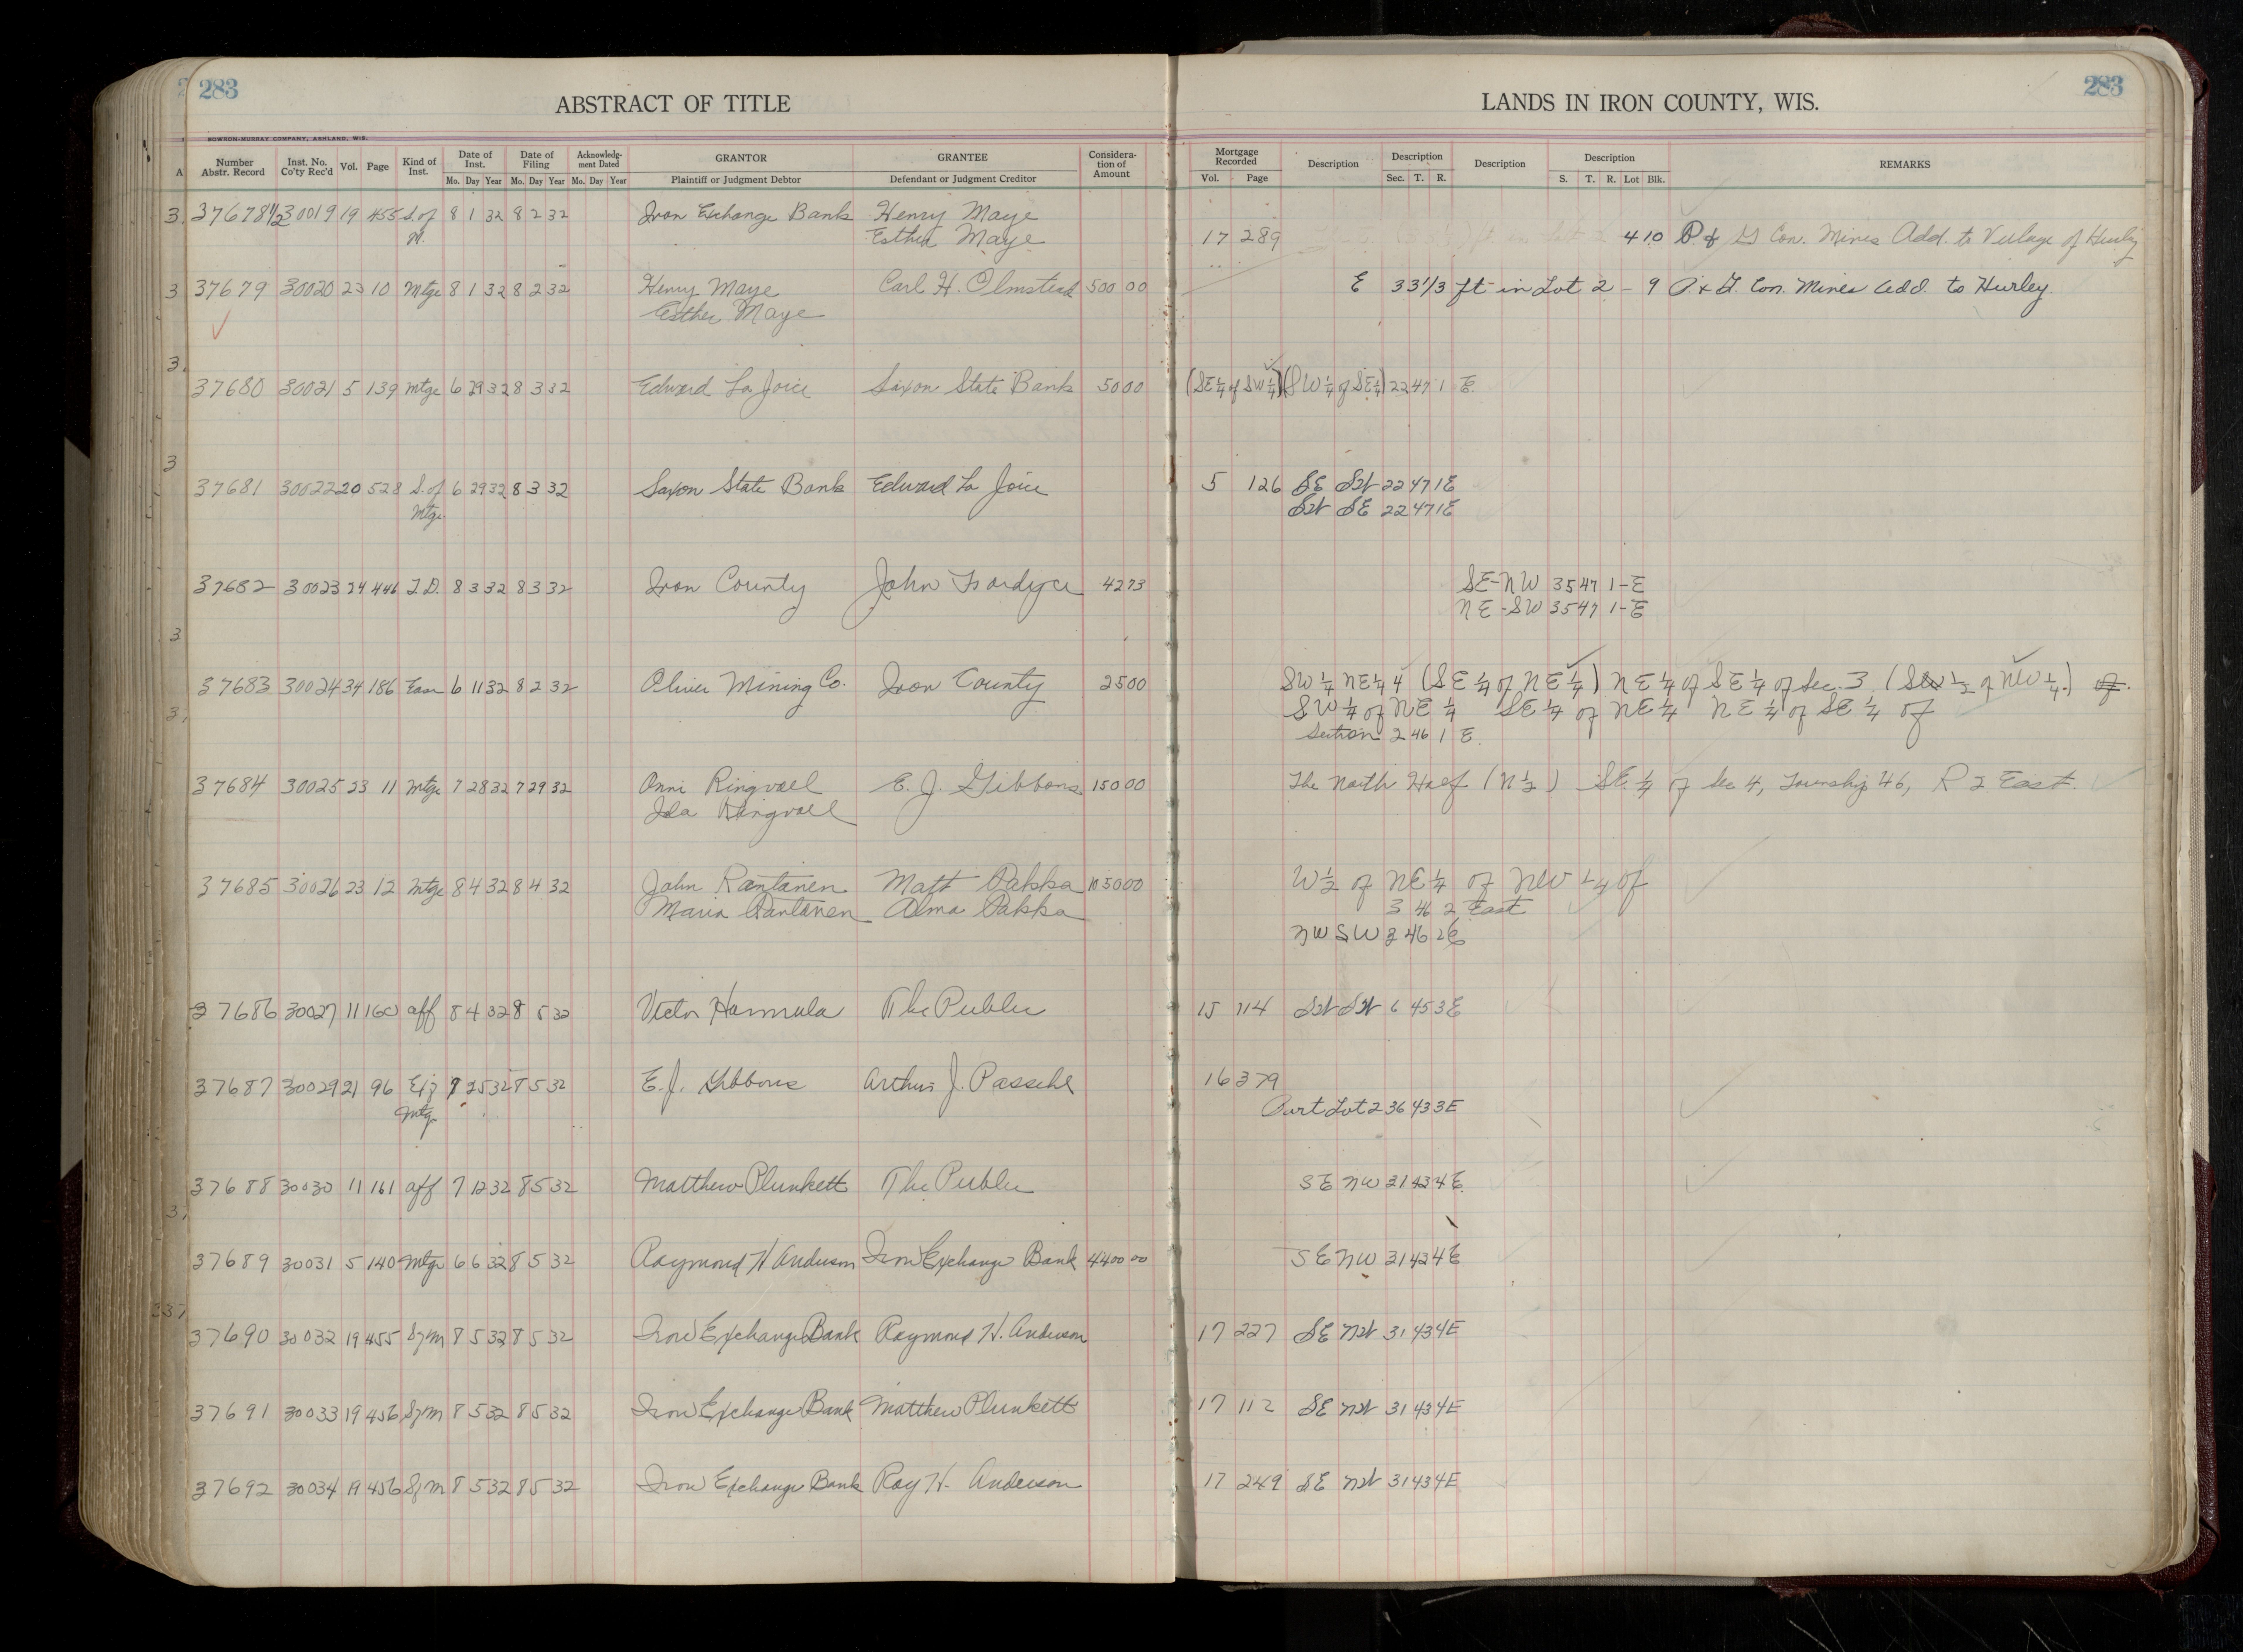 283
ABSTRACT OF TITLE
LANDS IN IRON COUNTY, WIS.
283
BOWRON-MURRAY COMPANY, ASHLAND, WIS.
Number Abstr. Record Inst. No. Co'ty Rec'd Vol. Page Kind of Inst. Date of Inst. Mo. Day Year Date of Filing Mo. Day Year Acknowledg-ment Dated Mo. Day Year GRANTOR Plaintiff or Judgment Debtor GRANTEE Defendant or Judgment Creditor Considera-tion of Amount Mortgage Recorded Vol. Page Description Description Sec. T. R. Description Description S. T. R. Lot Blk. REMARKS
37678 1/2 30019 19 455 S. of 8 1 32 8 2 32 Iron Exchange Bank Henry Maye
M. Esther Maye 17 289 4 10 P & G Con. Mines Add. to Village of Hurley
37679 30020 23 10 Mtge 8 1 32 8 2 32 Henry Maye Carl H. Olmstead 500 00 E 33 1/3 ft in Lot 2 - 9 P. & G. Con. Mines Add. to Hurley.
Esther Maye
37680 30021 5 139 Mtge 6 29 32 8 3 32 Edward La Joice Saxon State Bank 50 00 (SE 1/4 of SW 1/4) (SW 1/4 of SE 1/4) 22 47 1 E.
37681 30022 20 528 S. of 6 29 32 8 3 32 Saxon State Bank Edward La Joice 5 126 SE SW 22 47 1E
Mtge. SW SE 22 47 1E
37682 30023 24 446 T.D. 8 3 32 8 3 32 Iron County John 42 73 SE-NW 35 47 1-E
NE-SW 35 47 1-E
37683 30024 34 186 Ease 6 11 32 8 2 32 Oliver Mining Co. Iron County 25 00 SW 1/4 NE 1/4 (SE 1/4 of NE 1/4) NE 1/4 of SE 1/4 of Sec. 3 (S 1/2 of NW 1/4.) of.
SW 1/4 of NE 1/4 SE 1/4 of NE 1/4 NE 1/4 of SE 1/4 of
Section 2 46 1 E.
37684 30025 23 11 Mtge 7 28 32 7 29 32 Onni Ringvall E. J. Gibbons 150 00 The North Half (N 1/2) SE 1/4 of Sec 4, Township 46, R 2 East.
Ida Ringvall
37685 30026 23 12 Mtge 8 4 32 8 4 32 John Rantanen Matt Pakka 1050 00 W 1/2 of NE 1/4 of NW 1/4 of
Maria Rantanen Alma Pakka 3 46 2 East
NW SW 3 46 2E
37686 30027 11 160 aff 8 4 32 8 5 32 Victor Harmula The Public 15 114 SW SW 6 45 3E
37687 30029 21 96 7 25 32 8 5 32 E. J. Gibbons Arthur J. Passehl 16 379
Mtg. Part Lot 2 36 43 3E
37688 30030 11 161 aff 7 12 32 8 5 32 Matthew Plunkett The Public SE NW 31 43 4E.
37689 30031 5 140 Mtge 6 6 32 8 5 32 Raymond H Anderson Iron Exchange Bank 4400 00 SE NW 31 43 4E
37690 30032 19 455 S of M 8 5 32 8 5 32 Iron Exchange Bank Raymond H. Anderson 17 227 SE NW 31 43 4E
37691 30033 19 456 S of M 8 5 32 8 5 32 Iron Exchange Bank Matthew Plunkett 17 112 SE NW 31 43 4E
37692 30034 19 456 S of M 8 5 32 8 5 32 Iron Exchange Bank Roy H. Anderson 17 249 SE NW 31 43 4E